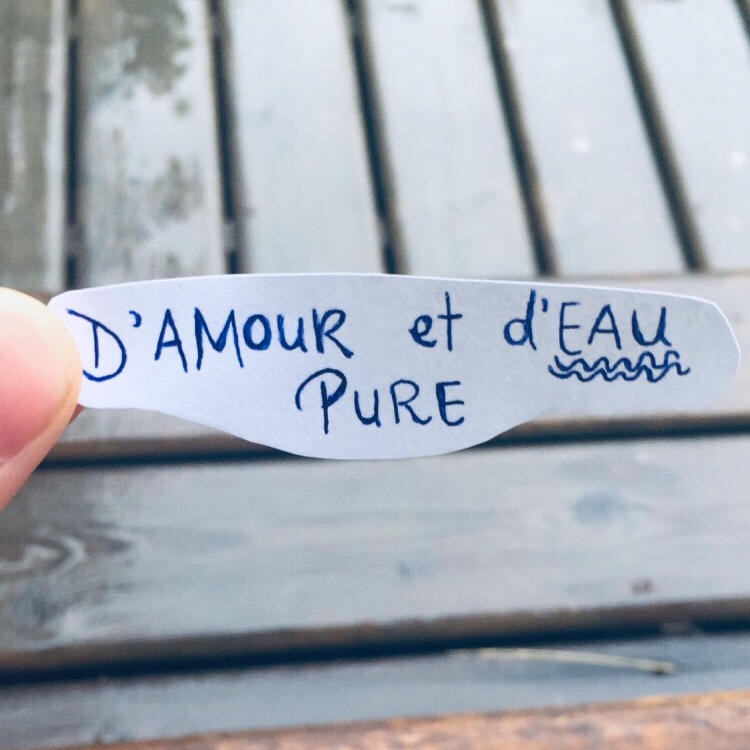 D'AMOUR et d'EAU
PURE